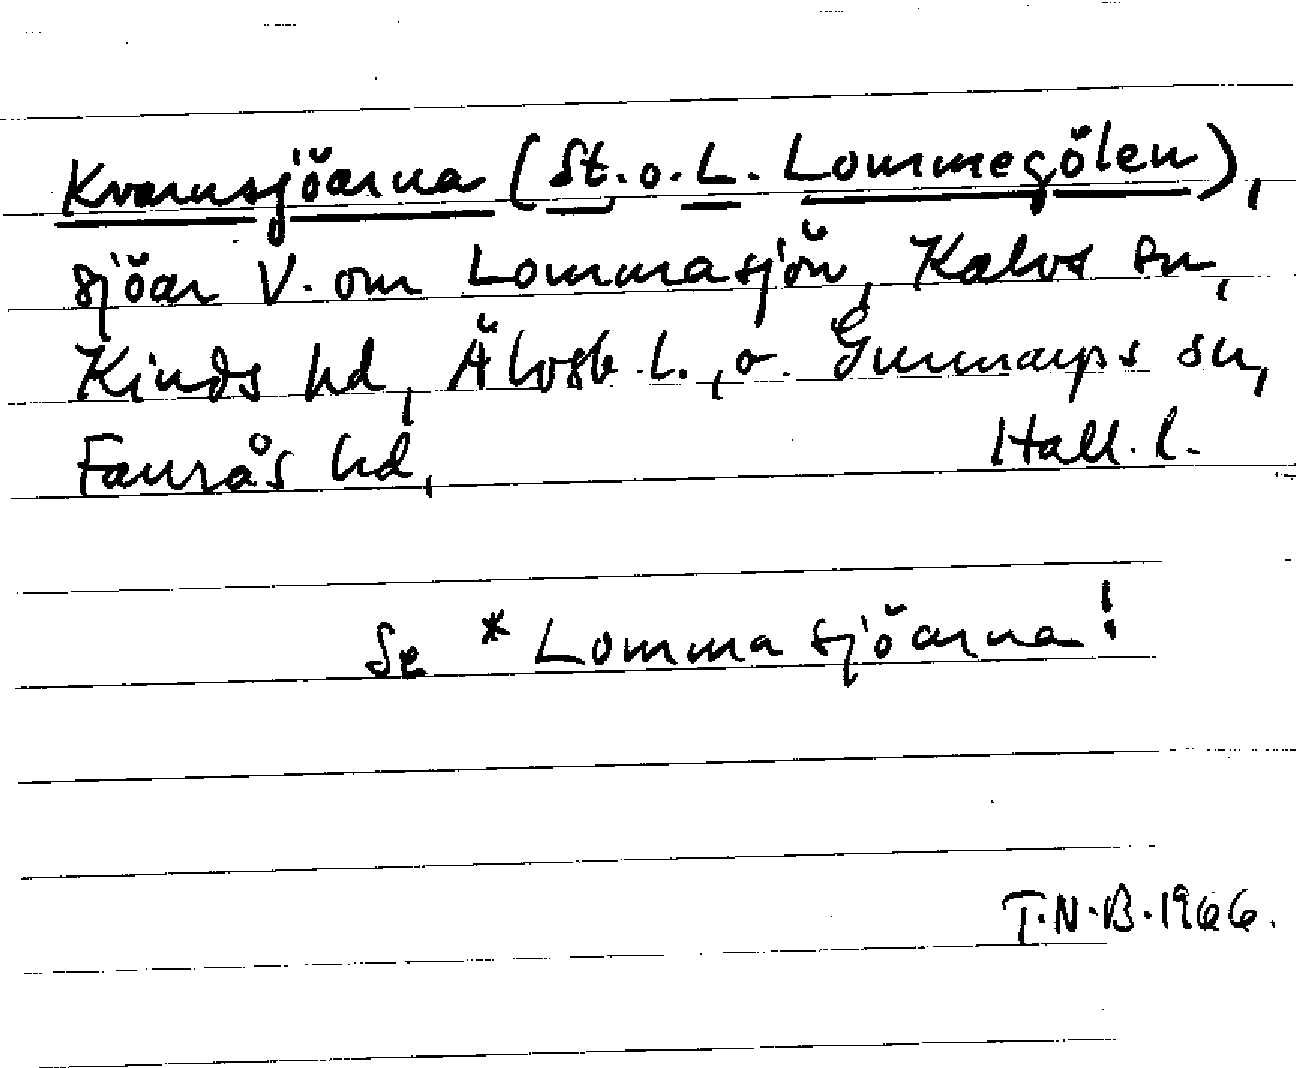 Kvarnsjöarna (St. o. L. Lommegölen),
sjöar V. om Lommasjön, Kalvs sn,
Kinds hd, Älvsb. l., o. Gunnarps sn,
Faurås hd, Hall. l.
Se *Lommasjöarna!
T.N.B. 1966.